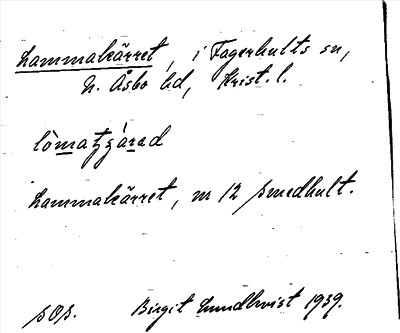 Lammakärret, i Fagerhults sn,
N. Åsbo hd, Krist. l.
lòmatʒárad
Lammakärret, nr 12 Smedhult.
sOs. Birgit Lundkvist 1939.